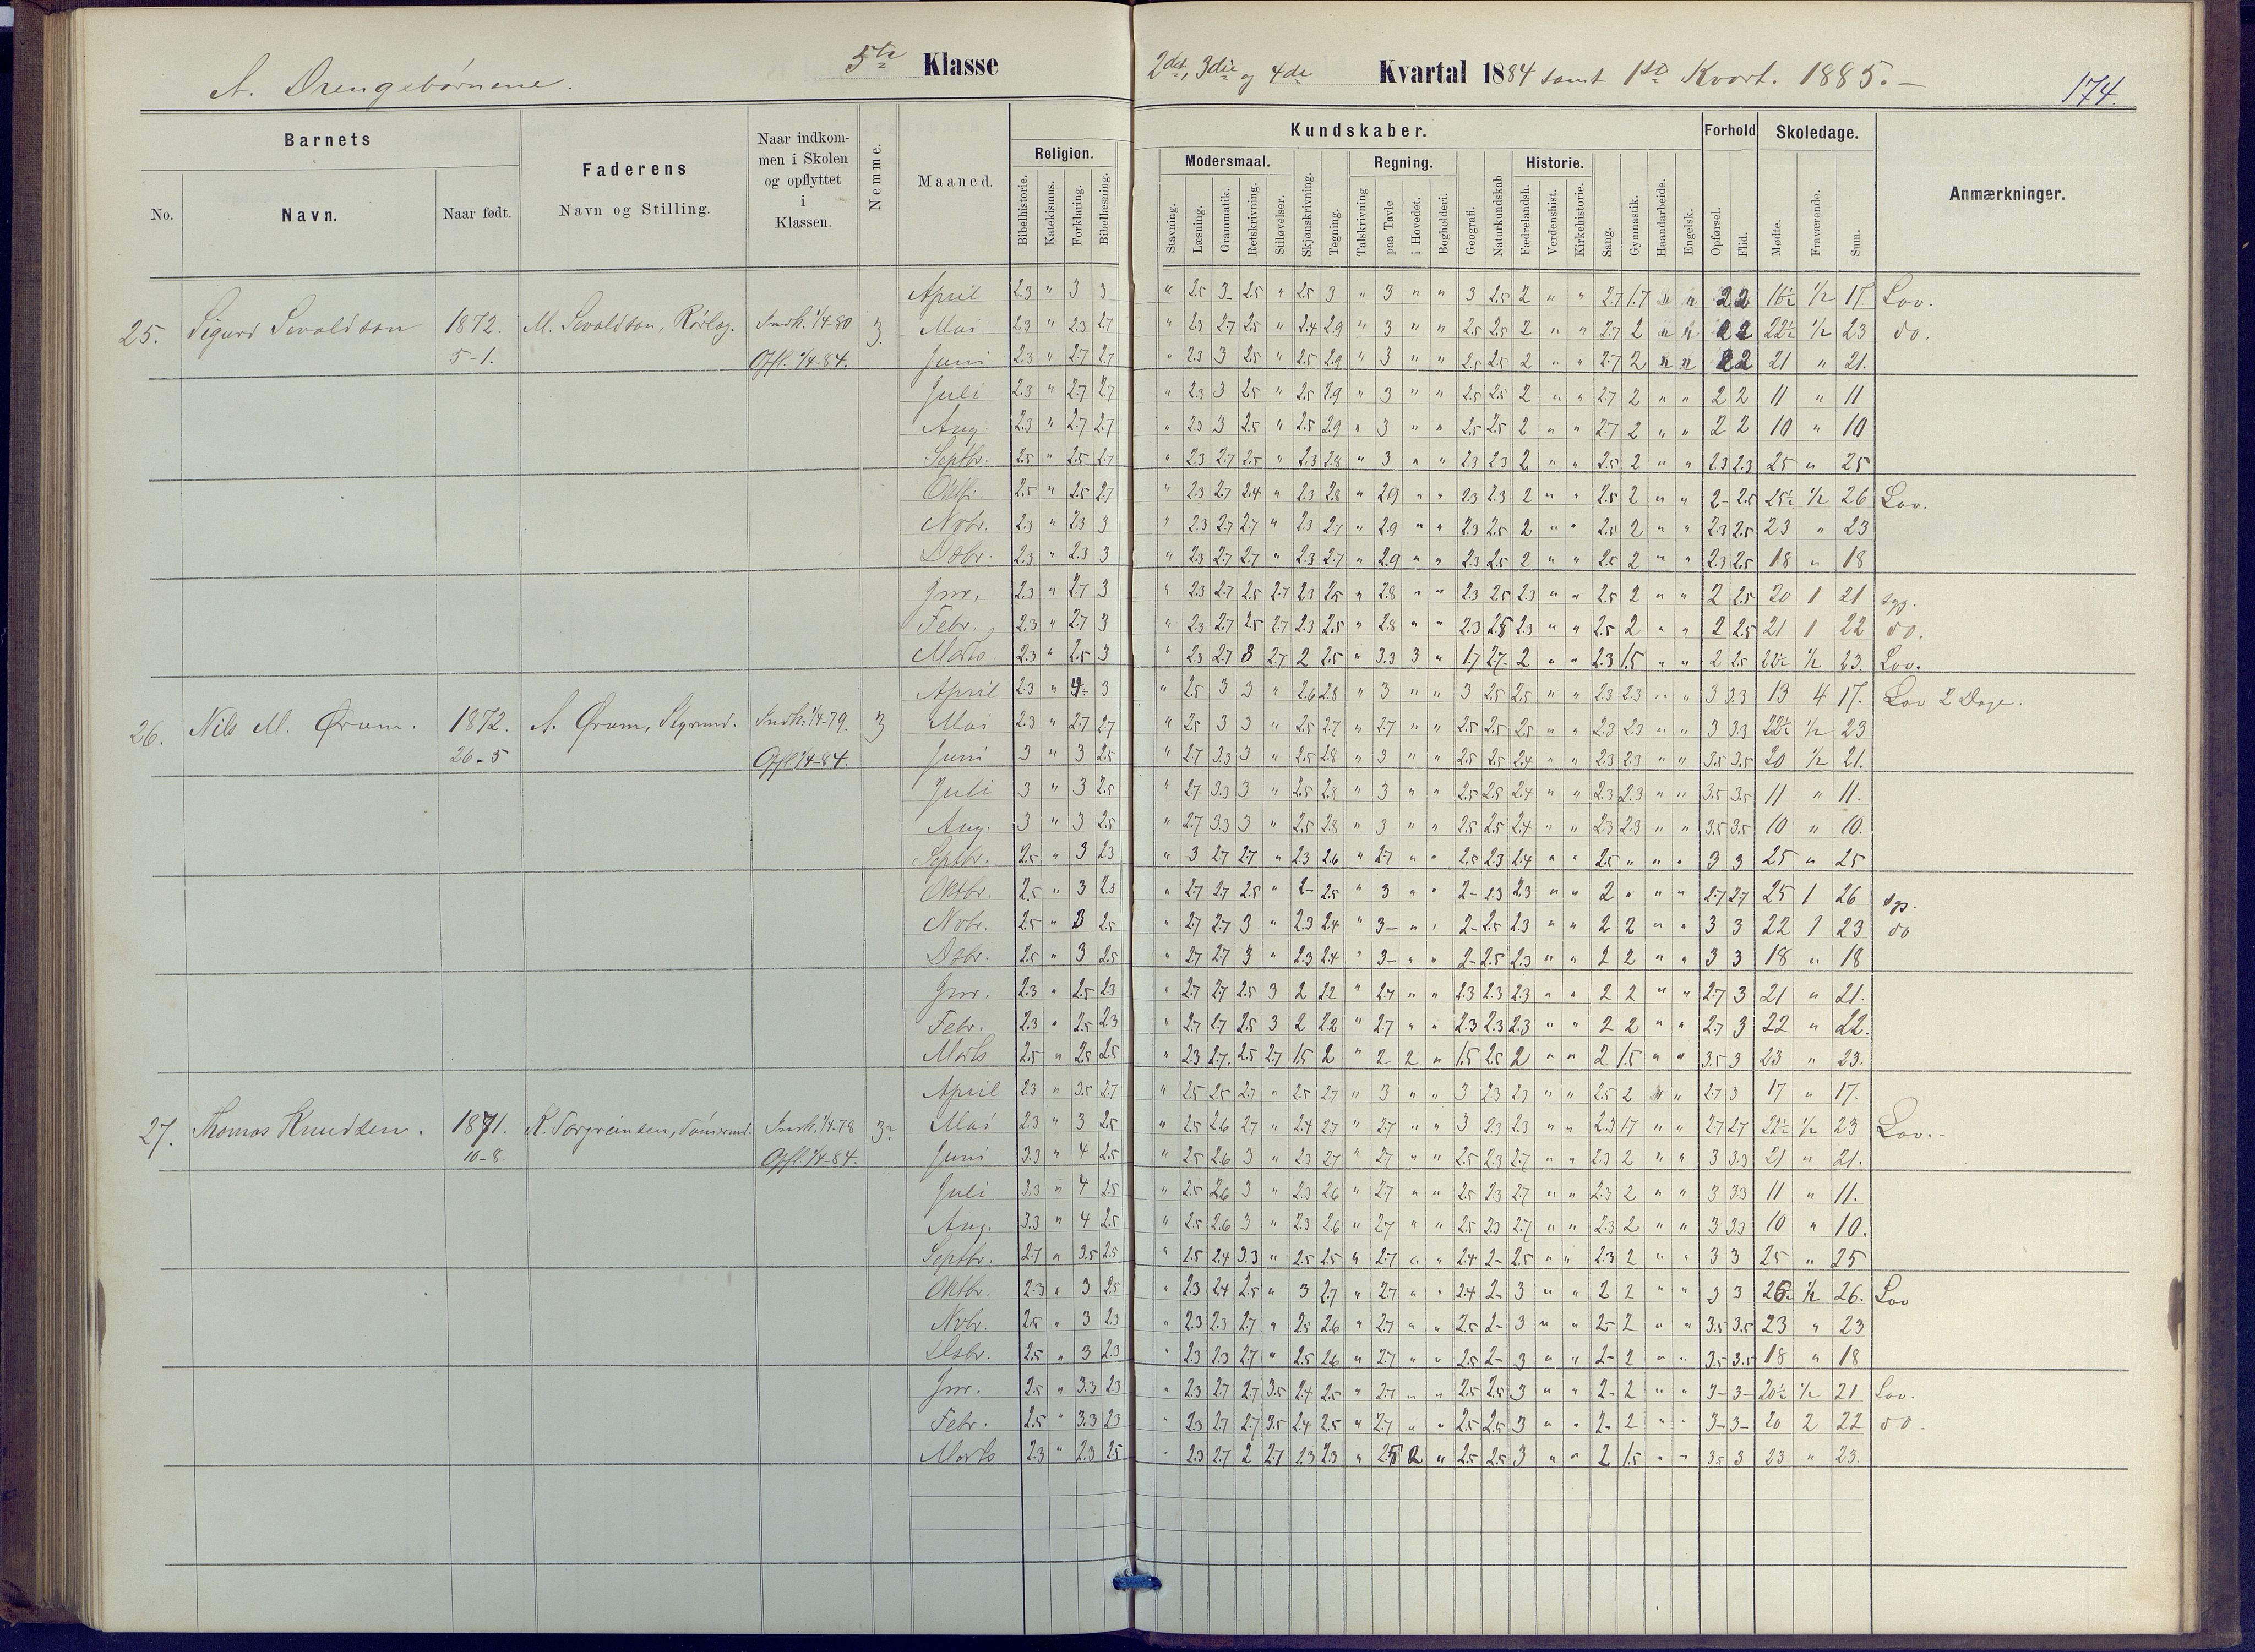 A. Drengebørnene.
5te Klasse
2det, 3die og 4de Kvartal 1884 samt 1ste Kvart. 1885.
174.
Barnets
No.
Navn.
Naar født.
Faderens
Navn og Stilling.
Naar indkom-
men i Skolen
og opflyttet
i
Klassen.
Nemme.
Maaned.
Religion.
Bibelhistorie.
Katekismus.
Forklaring.
Bibellæsning.
Kundskaber.
Modersmaal.
Stavning.
Læsning.
Grammatik.
Retskrivning.
Stiløvelser.
Skjønskrivning.
Tegning.
Regning.
Talskrivning
paa Tavle
i Hovedet.
Bogholderi.
Geografi.
Naturkundskab
Historie.
Fædrelandsh.
Verdenshist.
Kirkehistorie.
Sang.
Gymnastik.
Haandarbeide.
Engelsk.
Forhold
Opførsel.
Flid.
Skoledage.
Mødte.
Fraværende.
Sum.
Anmærkninger.
April 2.3 " 3 3 " 2.5 3- 2.5 " 2.5 3 " 3 " " 3 2.5 2 " " 2.7 1.7 " " 2 2 16½ ½ 17. Lov.
25. Sigurd Sevaldson 1872. M. Sevaldson, Indk. 1/4-80 3. Mai 2.3 " 2.3 2.7 " 2.3 2.7 2.5 " 2.4 2.9 " 3 " " 2.5 2.5 2 " " 2.7 2 " " 2 2 22½ ½ 23 do.
5-1. Opfl. 1/4-84. Juni 2.3 " 2.7 2.7 " 2.3 3 2.5 " 2.5 2.9 " 3 " " 2.5 2.5 2 " " 2.7 2 " " 2 2 21 " 21.
Juli 2.3 " 2.7 2.7 " 2.3 3 2.5 " 2.5 2.9 " 3 " " 2.5 2.5 2 " " 2.7 2 " " 2 2 11 " 11
Aug. 2.3 " 2.7 2.7 " 2.3 3 2.5 " 2.5 2.9 " 3 " " 2.5 2.5 2 " " 2.7 2 " " 2 2 10 " 10
Septbr. 2.5 " 2.5 2.7 " 2.3 2.7 2.5 " 2.3 2.8 " 3 " " 2.3 2.3 2 " " 2.5 2 " " 2.3 2.3 25 " 25
Oktbr. 2.5 " 2.5 2.7 " 2.3 2.7 2.4 " 2.3 2.8 " 2.9 " " 2.3 2.3 2 " " 2.5 2 " " 2- 2.5 25½ ½ 26 Lov.
Nvbr. 2.3 " 2.3 3 " 2.3 2.7 2.7 " 2.3 2.7 " 2.9 " " 2.3 2.5 2 " " 2.5 2 " " 2.3 2.5 23 " 23
Dsbr. 2.3 " 2.3 3 " 2.3 2.7 2.7 " 2.3 2.7 " 2.9 " " 2.3 2.5 2 " " 2.5 2 " " 2.3 2.5 18 " 18
Jnr. 2.3 " 2.7 3 " 2.3 2.7 2.5 2.7 2.3 2.5 " 2.8 " " 2.3 2.5 2.3 " " 2.5 2 " " 2 2.5 20 1 21 syg.
Febr. 2.3 " 2.7 3 " 2.3 2.7 2.5 2.7 2.3 2.5 " 2.8 " " 2.3 2.5 2.3 " " 2.5 2 " " 2 2.5 21 1 22 do.
Marts 2.3 " 2.5 3 " 2.3 2.7 3 2.7 2 2.5 " 3.3 3 " 1.7 2.7. 2 " " 2.3 1.5 " " 2 2.5 22½ ½ 23. Lov.
April 2.3 " 4- 3 " 2.5 3 3 " 2.6 2.8 " 3 " " 3 2.5 2.5 " " 2.3 2.3 " " 3 3.3 13 4 17. Lov 2 Dage.
26. Nils M. Ørum. 1872. A. Ørum, Styrmd. Indk. 1/4-79. 3 Mai 2.3 " 2.7 2.7 " 2.5 3 3 " 2.5 2.7 " 2.7 " " 2.5 2.5 2.5 " " 2.3 2.3 " " 3 3.3 22½ ½ 23
26-5 Opfl. 1/4-84. Juni 3 " 3 2.5 " 2.7 3.3 3 " 2.5 2.8 " 3 " " 2.5 2.5 2.4 " " 2.3 2.3 " " 3.5 3.5 20 ½ 21.
Juli 3 " 3 2.5 " 2.7 3.3 3 " 2.5 2.8 " 3 " " 2.5 2.5 2.4 " " 2.3 2.3 " " 3.5 3.5 11 " 11.
Aug. 3 " 3 2.5 " 2.7 3.3 3 " 2.5 2.8 " 3 " " 2.5 2.5 2.4 " " 2.3 2.3 " " 3.5 3.5 10 " 10.
Septbr. 2.5 " 3 2.3 " 3 2.7 2.7 " 2.3 2.6 " 2.7 " " 2.5 2.3 2.4 " " 2.5 " " " 3 3 25 " 25
Oktbr. 2.5 " 3 2.3 " 2.7 2.7 2.5 " 2- 2.5 " 3 " " 2- 2.3 2.3 " " 2 " " " 2.7 2.7 25 1 26 syg.
Nvbr. 2.5 " 3 2.5 " 2.7 2.7 3 " 2.3 2.4 " 3- " " 2- 2.5 2.3 " " 2 2 " " 3 3 22 1 23 do
Dsbr. 2.5 " 3 2.5 " 2.7 2.7 3 " 2.3 2.4 " 3- " " 2- 2.5 2.3 " " 2 2 " " 3 3 18 " 18
Jnr. 2.3 " 2.5 2.3 " 2.7 2.7 2.5 3 2 2.2 " 2.7 " " 2.3 2.3 2.3 " " 2 2 " " 2.7 3 21 " 21.
Febr. 2.3 " 2.5 2.3 " 2.7 2.7 2.5 3 2 2.2 " 2.7 " " 2.3 2.3 2.3 " " 2 2 " " 2.7 3 22 " 22.
Marts 2.5 " 2.5 2.5 " 2.3 2.7. 2.5 2.7 1.5 2 " 2 2 " 1.5 2.5 2 " " 2 1.5 " " 3.5 3 23 " 23.
April 2.3 " 3.5 2.7 " 2.5 2.5 2.7 " 2.5 2.7 " 3 " " 3 2.3 2.3 " " 2.5 2 " " 2.7 3 17 " 17.
27. Thomas Knudsen. 1871. K. Indk. 1/4-78 3- Mai 2.3 " 3 2.5 " 2.5 2.6 2.7 " 2.4 2.7 " 2.7 " " 3 2.3 2.3 " " 2.3 1.7 " " 2.7 2.7 22½ ½ 23 Lov.-
10-8. Opfl. 1/4-84. Juni 3.3 " 4 2.5 " 2.5 2.6 3 " 2.3 2.7 " 2.7 " " 2.5 2.3 2.7 " " 2.3 2 " " 3 3.3 21 " 21.
Juli 3.3 " 4 2.5 " 2.5 2.6 3 " 2.3 2.6 " 2.7 " " 2.5 2.3 2.7 " " 2.3 2 " " 3 3.3 11 " 11.
Aug. 3.3 " 4 2.5 " 2.5 2.6 3 " 2.3 2.6 " 2.7 " " 2.5 2.3 2.7 " " 2.3 2 " " 3 3.3 10 " 10.
Septbr. 2.7 " 3.5 2.5 " 2.5 2.4 3.3 " 2.5 2.5 " 2.7 " " 2.4 2- 2.5 " " 2.3 2 " " 3 3 25 " 25
Oktbr. 2.3 " 3 2.5 " 2.3 2.4 2.5 " 3 2.7 " 2.7 " " 2.4 2- 3 " " 2 2 " " 3 3 25½ ½ 26. Lov
Nvbr. 2.5 " 3 2.3 " 2.3 2.3 2.7 " 2.5 2.6 " 2.7 " " 2.5 2- 3 " " 2- 2 " " 3.5 3.5 23 " 23
Dsbr. 2.5 " 3 2.3 " 2.3 2.3 2.7 " 2.5 2.6 " 2.7 " " 2.5 2- 3 " " 2- 2 " " 3.5 3.5 18 " 18
Jnr. 2.5 " 3.3 2.3 " 2.3 2.7 2.7 3.5 2.4 2.5 " 2.7 " " 2.5 2.5 3 " " 2- 2 " " 3- 3- 20½ ½ 21 Lov.
Febr. 2.5 " 3.3 2.3 " 2.3 2.7 2.7 3.5 2.4 2.5 " 2.7 " " 2.5 2.5 3 " " 2- 2 " " 3- 3- 20 2 22 do.
Marts 2.3 " 2.3 2.5 " 2.3 2.7 2 2.7 2.3 2.3 " 2.5 2 " 2.5 2.5 3 " " 2 1.5 " " 3.5 3 23 " 23.